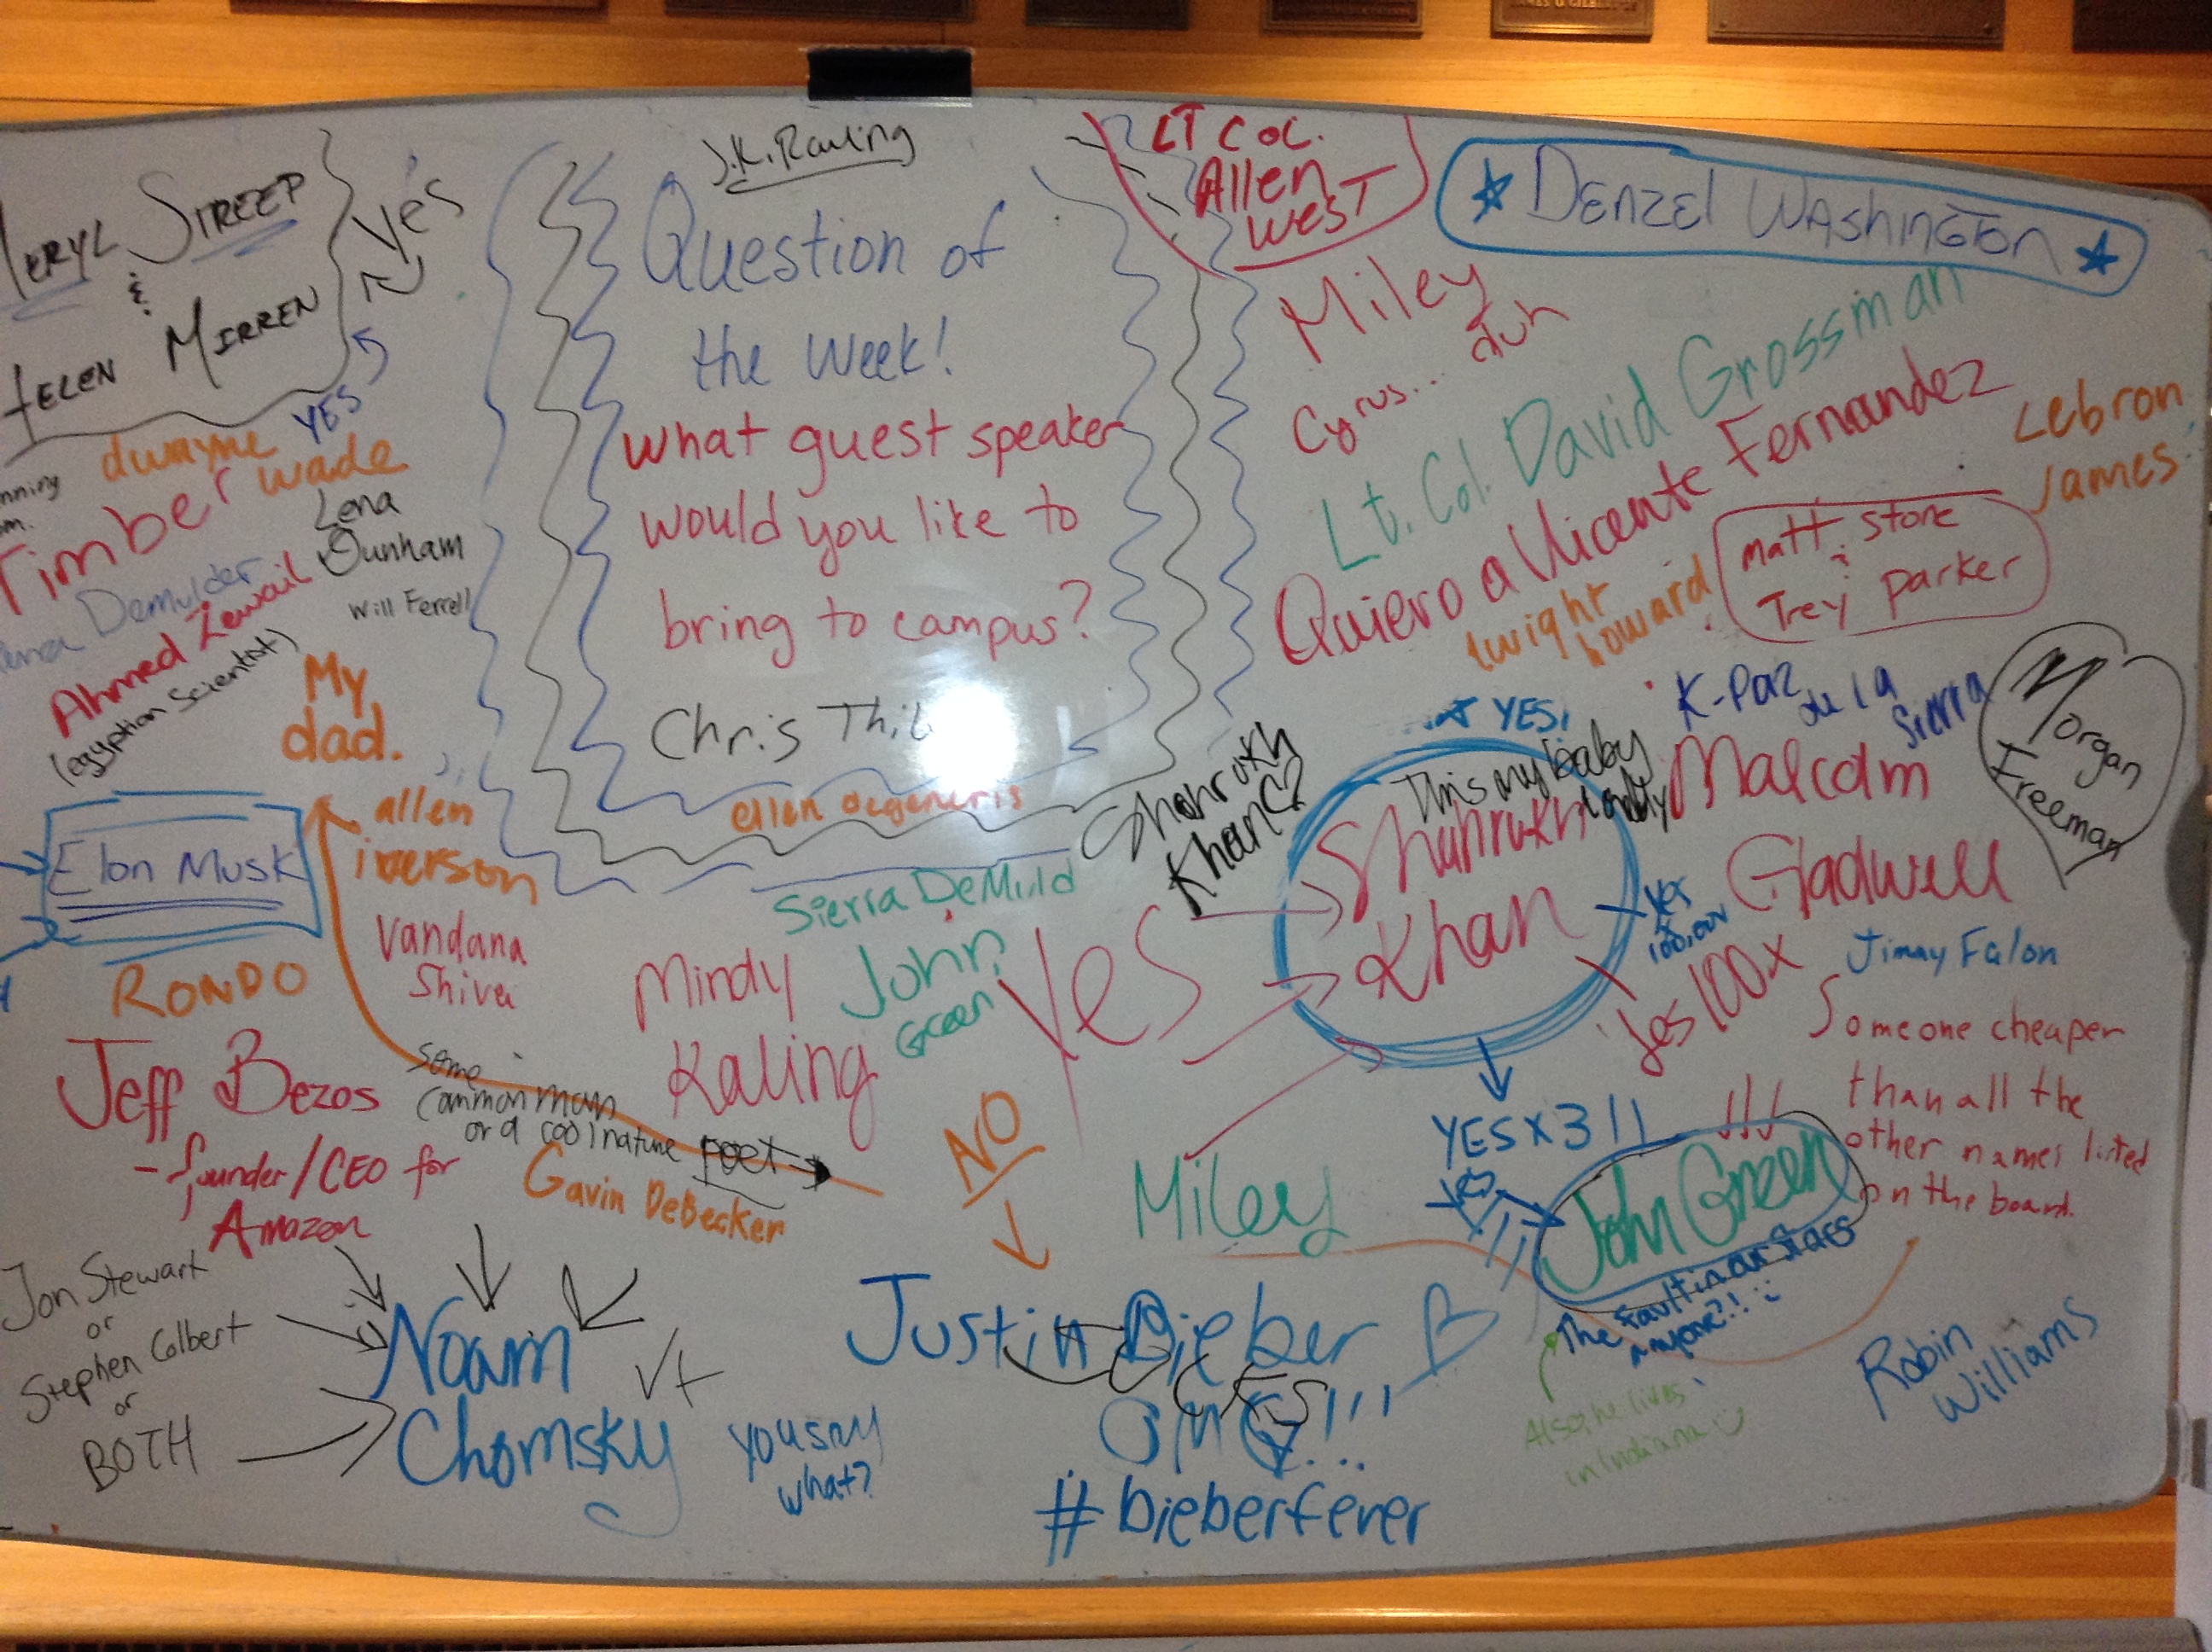 J.K. Rowling
Question of
the Week!
What guest speaker
would you like to
bring to campus?
Chris
ellen degeneris
MERYL STREEP
&
HELEN MIRREN
Yes
YES
dwayne
wade
Timber
Lena
Dunham
Will Ferrell
Demulder
Ahmed Zewail
(egyption Scientist)
My
dad.
allen
iverson
Elon Musk
Vandana
Shiva
RONDO
Jeff Bezos
- founder/CEO for
Amazon
some
common man
or a cool nature poet
Gavin DeBecker
Jon Stewart
or
Stephen Colbert
or
BOTH
Noam
Chomsky
you say
what?
Sierra DeMuld
Mindy
Kaling
John
Green
Yes
NO
Miley
Justin Bieber
OMG!!!
#bieberfever
LT COL.
Allen
West
DENZEL WASHINGTON
Miley
Cyrus... duh
Lt. Col. David Grossman
Quiero a Vicente Fernandez
Lebron
James
matt stone
&
Trey parker
dwight
howard
K-Paz de la Sierra
Morgan
Freeman
YES!
This my baby
Shahrukh
Khan
Shahrukh
Khan
Malcolm
Gladwell
yes
x
Yes 100x
Jimmy Falon
Someone cheaper
than all the
other names listed
on the board.
YES x 3 !!
yes
John Green
The fault in our stars
anyone?! :)
Also, he lives
in Indiana :)
Robin
Williams